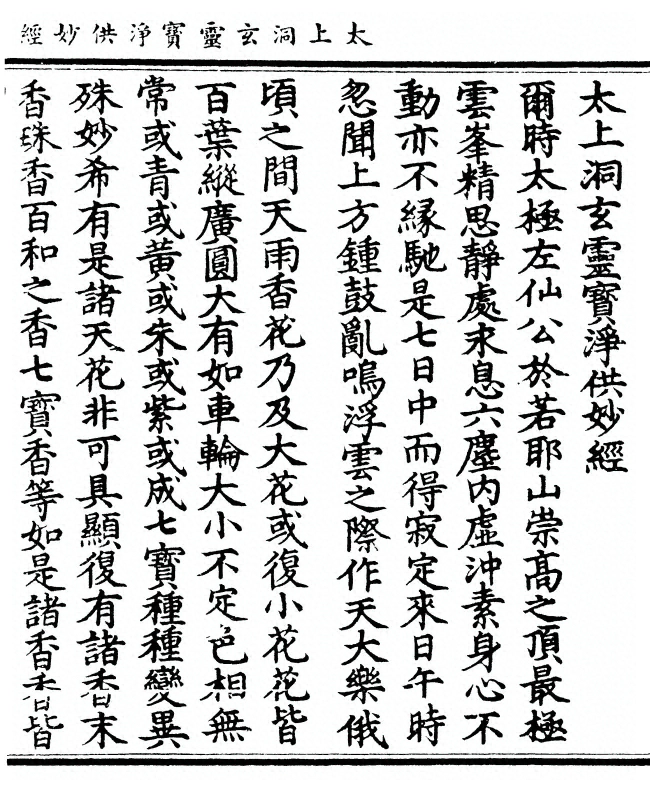 太上洞玄靈寶淨供妙經
太上洞玄靈寶淨供妙經
爾時太極左仙公於若耶山崇髙之頂最極
雲峯精思靜處求息六塵内虛沖素身心不
動亦不緣馳是七日中而得寂定來日午時
忽聞上方鍾鼓亂鳴浮雲之際作天大樂俄
頃之間天雨香花乃及大花或復小花花皆
百葉縱廣圓大有如車輪大小不定色相無
常或青或黄或朱或紫或成七寶種種變異
殊妙希有是諸天花非可具顯復有諸香末
香珠香百和之香七寶香等如是諸香香皆